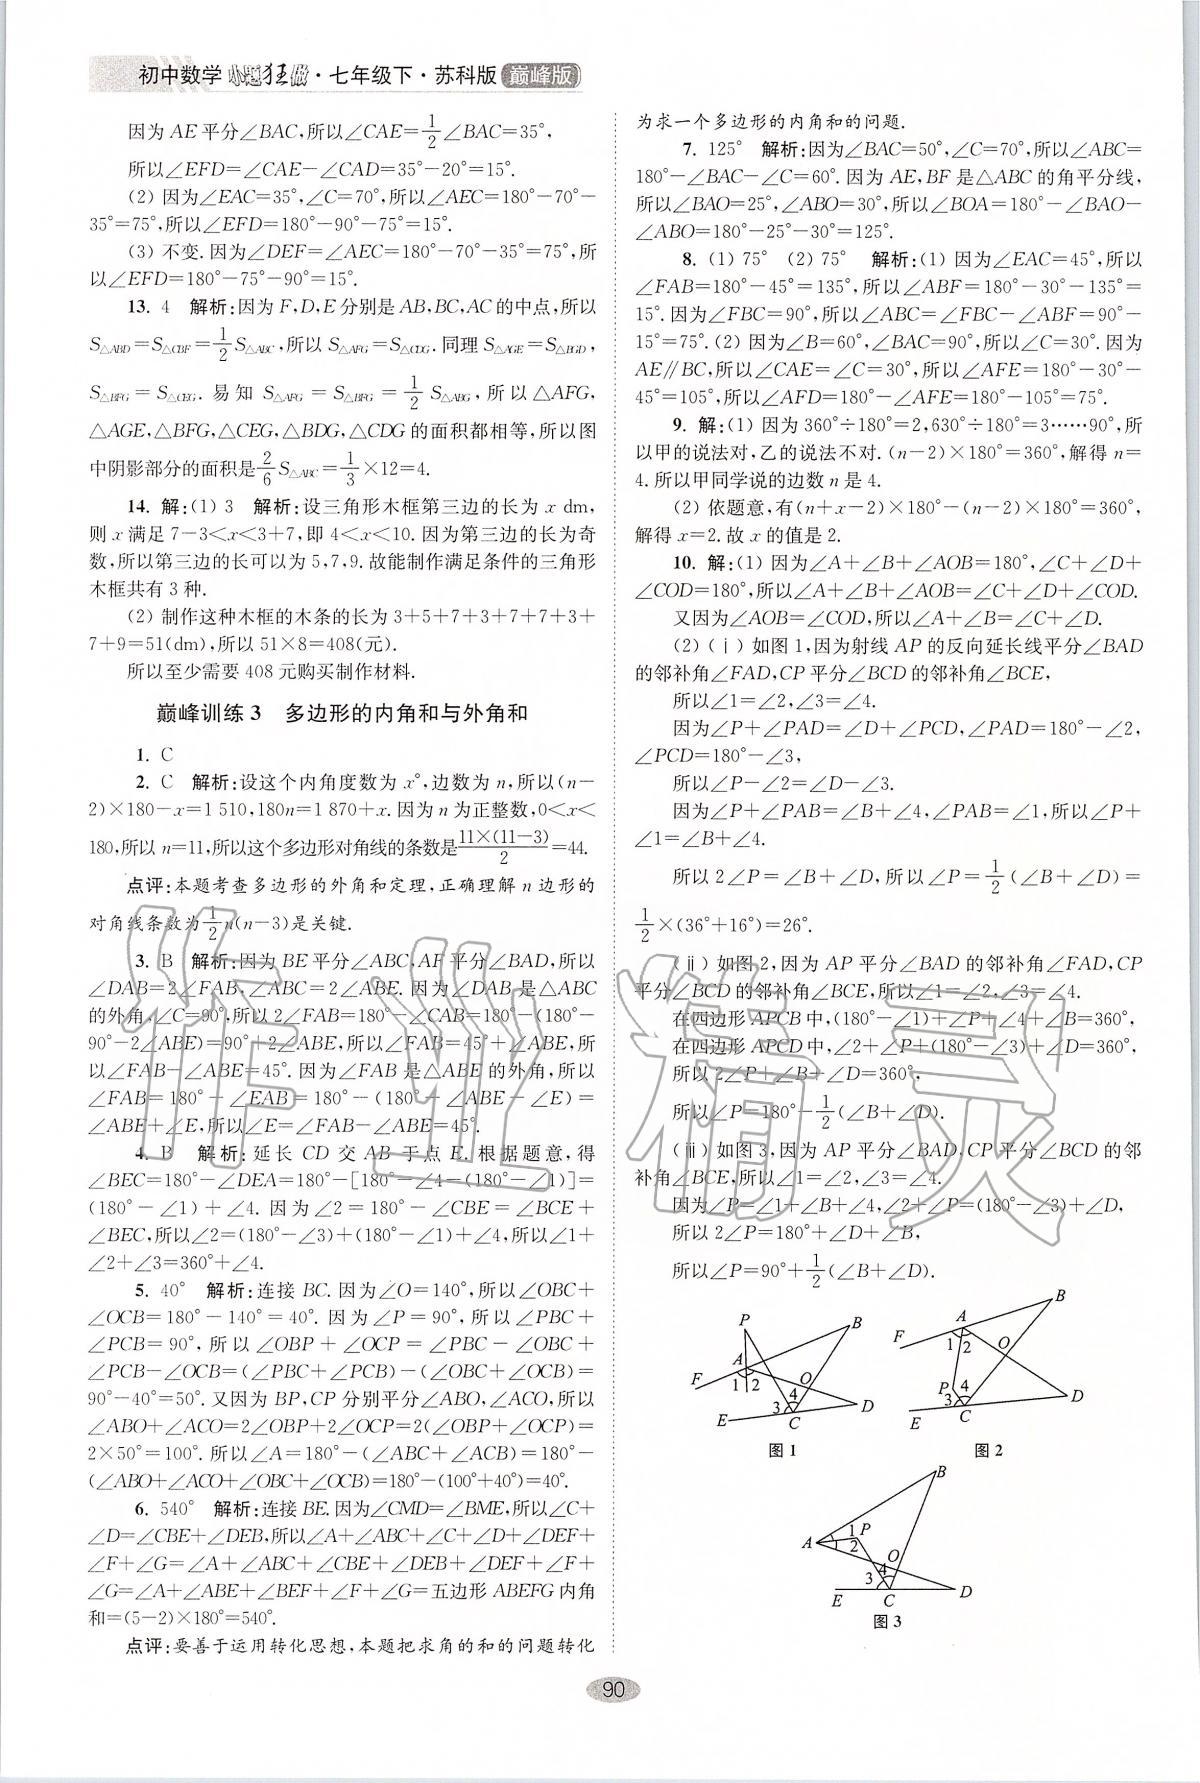 初中数学 小题狂做·七年级下·苏科版 巅峰版
因为 AE 平分∠BAC,所以∠CAE=1/2∠BAC=35°,
所以∠EFD=∠CAE-∠CAD=35°-20°=15°.
(2) 因为∠EAC=35°,∠C=70°,所以∠AEC=180°-70°-
35°=75°,所以∠EFD=180°-90°-75°=15°.
(3) 不变.因为∠DEF=∠AEC=180°-70°-35°=75°,所
以∠EFD=180°-75°-90°=15°.
13. 4 解析:因为 F,D,E 分别是 AB,BC,AC 的中点,所以
S△ABD=S△CBF=1/2 S△ABC,所以 S△AFG=S△CDG.同理 S△AGE=S△BGD,
S△BFG=S△CEG.易知 S△AFG=S△BFG=1/2 S△ABG,所以△AFG,
△AGE,△BFG,△CEG,△BDG,△CDG 的面积都相等,所以图
中阴影部分的面积是2/6 S△ABC=1/3×12=4.
14. 解:(1) 3 解析:设三角形木框第三边的长为 x dm,
则 x 满足 7-3<x<3+7,即 4<x<10.因为第三边的长为奇
数,所以第三边的长可以为 5,7,9.故能制作满足条件的三角形
木框共有 3 种.
(2) 制作这种木框的木条的长为 3+5+7+3+7+7+3+
7+9=51(dm),所以 51×8=408(元).
所以至少需要 408 元购买制作材料.
巅峰训练 3 多边形的内角和与外角和
1. C
2. C 解析:设这个内角度数为 x°,边数为 n,所以(n-
2)×180-x=1 510,180n=1 870+x.因为 n 为正整数,0<x<
180,所以 n=11,所以这个多边形对角线的条数是11×(11-3)/2=44.
点评:本题考查多边形的外角和定理,正确理解 n 边形的
对角线条数为1/2 n(n-3)是关键.
3. B 解析:因为 BE 平分∠ABC,AF 平分∠BAD,所以
∠DAB=2∠FAB,∠ABC=2∠ABE.因为∠DAB 是△ABC
的外角,∠C=90°,所以 2∠FAB=180°-∠CAB=180°-(180°-
90°-2∠ABE)=90°+2∠ABE,所以∠FAB=45°+∠ABE,所
以∠FAB-∠ABE=45°.因为∠FAB 是△ABE 的外角,所以
∠FAB=180°-∠EAB=180°-(180°-∠ABE-∠E)=
∠ABE+∠E,所以∠E=∠FAB-∠ABE=45°.
4. B 解析:延长 CD 交 AB 于点 E.根据题意,得
∠BEC=180°-∠DEA=180°-[180°-∠4-(180°-∠1)]=
(180°-∠1)+∠4.因为∠2=180°-∠CBE=∠BCE+
∠BEC,所以∠2=(180°-∠3)+(180°-∠1)+∠4,所以∠1+
∠2+∠3=360°+∠4.
5. 40° 解析:连接 BC.因为∠O=140°,所以∠OBC+
∠OCB=180°-140°=40°.因为∠P=90°,所以∠PBC+
∠PCB=90°,所以∠OBP+∠OCP=∠PBC-∠OBC+
∠PCB-∠OCB=(∠PBC+∠PCB)-(∠OBC+∠OCB)=
90°-40°=50°.又因为 BP,CP 分别平分∠ABO,∠ACO,所以
∠ABO+∠ACO=2∠OBP+2∠OCP=2(∠OBP+∠OCP)=
2×50°=100°.所以∠A=180°-(∠ABC+∠ACB)=180°-
(∠ABO+∠ACO+∠OBC+∠OCB)=180°-(100°+40°)=40°.
6. 540° 解析:连接 BE.因为∠CMD=∠BME,所以∠C+
∠D=∠CBE+∠DEB,所以∠A+∠ABC+∠C+∠D+∠DEF+
∠F+∠G=∠A+∠ABC+∠CBE+∠DEB+∠DEF+∠F+
∠G=∠A+∠ABE+∠BEF+∠F+∠G=五边形 ABEFG 内角
和=(5-2)×180°=540°.
点评:要善于运用转化思想,本题把求角的和的问题转化
为求一个多边形的内角和的问题.
7. 125° 解析:因为∠BAC=50°,∠C=70°,所以∠ABC=
180°-∠BAC-∠C=60°.因为 AE,BF 是△ABC 的角平分线,
所以∠BAO=25°,∠ABO=30°,所以∠BOA=180°-∠BAO-
∠ABO=180°-25°-30°=125°.
8. (1) 75° (2) 75° 解析:(1) 因为∠EAC=45°,所以
∠FAB=180°-45°=135°,所以∠ABF=180°-30°-135°=
15°.因为∠FBC=90°,所以∠ABC=∠FBC-∠ABF=90°-
15°=75°.(2) 因为∠B=60°,∠BAC=90°,所以∠C=30°.因为
AE∥BC,所以∠CAE=∠C=30°,所以∠AFE=180°-30°-
45°=105°,所以∠AFD=180°-∠AFE=180°-105°=75°.
9. 解:(1) 因为 360°÷180°=2,630°÷180°=3……90°,所
以甲的说法对,乙的说法不对.(n-2)×180°=360°,解得 n=
4.所以甲同学说的边数 n 是 4.
(2) 依题意,有(n+x-2)×180°-(n-2)×180°=360°,
解得 x=2.故 x 的值是 2.
10. 解:(1) 因为∠A+∠B+∠AOB=180°,∠C+∠D+
∠COD=180°,所以∠A+∠B+∠AOB=∠C+∠D+∠COD.
又因为∠AOB=∠COD,所以∠A+∠B=∠C+∠D.
(2) (ⅰ) 如图 1,因为射线 AP 的反向延长线平分∠BAD
的邻补角∠FAD,CP 平分∠BCD 的邻补角∠BCE,
所以∠1=∠2,∠3=∠4.
因为∠P+∠PAD=∠D+∠PCD,∠PAD=180°-∠2,
∠PCD=180°-∠3,
所以∠P-∠2=∠D-∠3.
因为∠P+∠PAB=∠B+∠4,∠PAB=∠1,所以∠P+
∠1=∠B+∠4.
所以 2∠P=∠B+∠D,所以∠P=1/2(∠B+∠D)=
1/2×(36°+16°)=26°.
(ⅱ) 如图 2,因为 AP 平分∠BAD 的邻补角∠FAD,CP
平分∠BCD 的邻补角∠BCE,所以∠1=∠2,∠3=∠4.
在四边形 APCB 中,(180°-∠1)+∠P+∠4+∠B=360°,
在四边形 APCD 中,∠2+∠P+(180°-∠3)+∠D=360°,
所以 2∠P+∠B+∠D=360°,
所以∠P=180°-1/2(∠B+∠D).
(ⅲ) 如图 3,因为 AP 平分∠BAD,CP 平分∠BCD 的邻
补角∠BCE,所以∠1=∠2,∠3=∠4.
因为∠P=∠1+∠B+∠4,∠2+∠P=(180°-∠3)+∠D,
所以 2∠P=180°+∠D+∠B,
所以∠P=90°+1/2(∠B+∠D).
P B A F 1 2 O 4 3 D E C
图 1
B A F 1 2 O P 4 3 D E C
图 2
B A 1 P 2 O 4 3 E C D
图 3
90
作业精灵